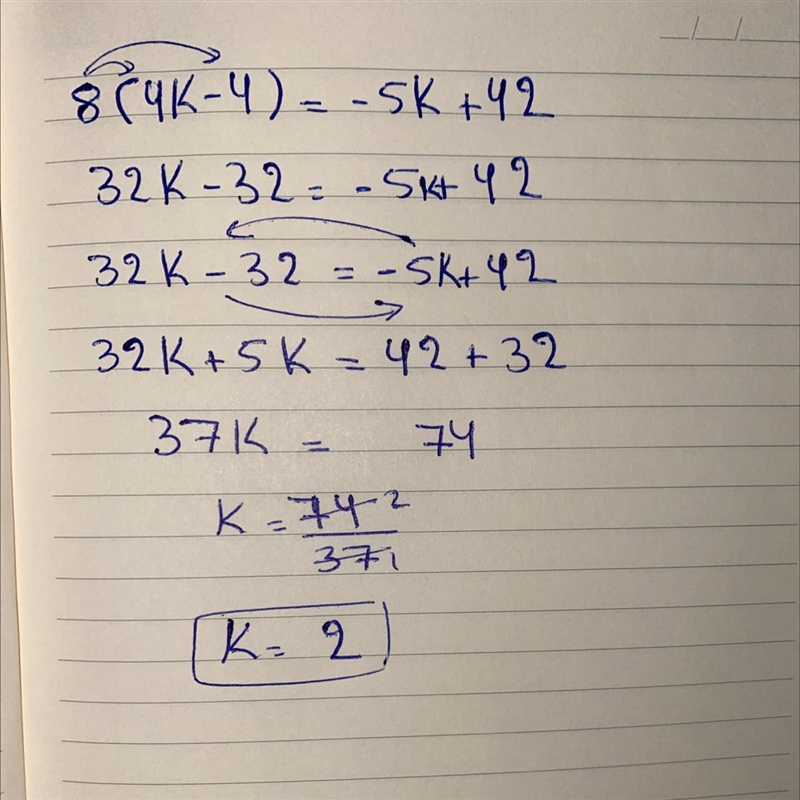 8(4K-4) = -5K+42
32K-32 = -5K+42
32K-32 = -5K+42
32K+5K = 42+32
37K = 74
K = 74 2
37 1
K = 2